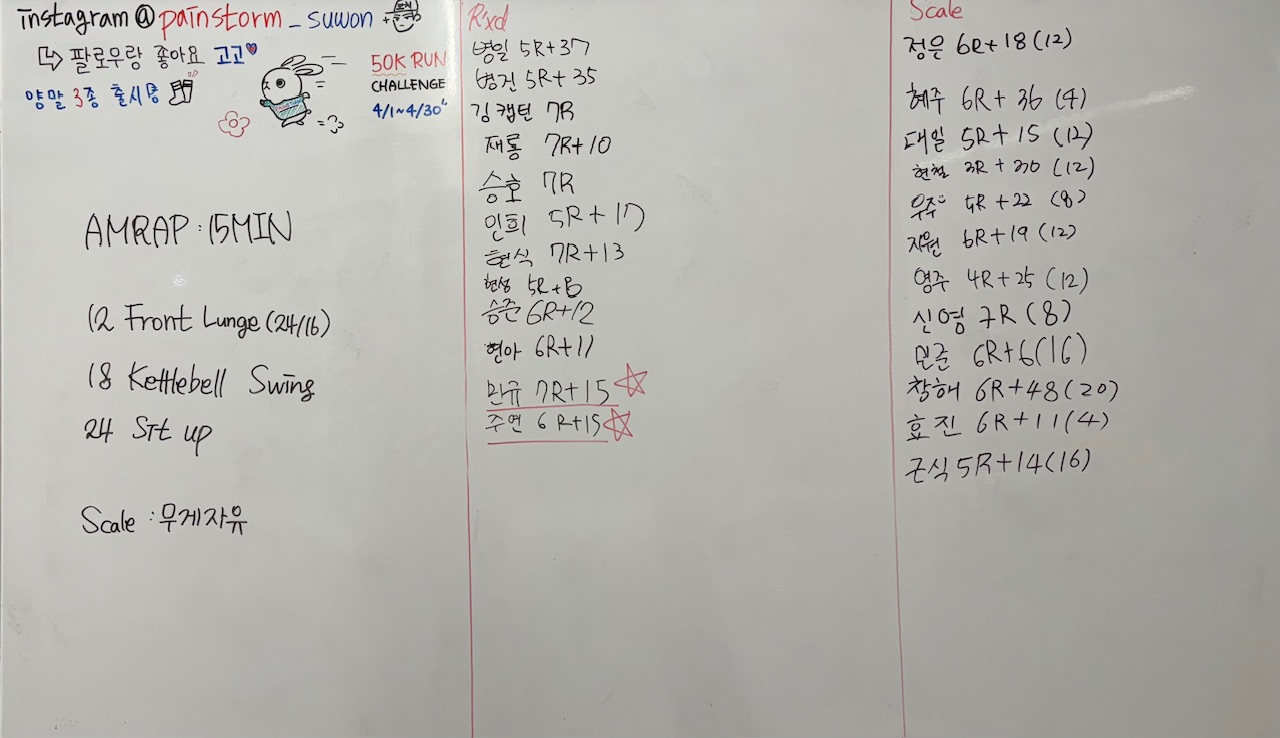 instagram@painstorm_suwon
팔로우랑 좋아요 고고
양말 3종 출시중
50K RUN
CHALLENGE
4/1~4/30
AMRAP : 15MIN
12 Front Lunge (24/16)
18 Kettlebell Swing
24 Sit up
Scale : 무게자유
R'xd
병일 5R+37
병건 5R+35
김캡틴 7R
재룡 7R+10
승호 7R
인희 5R+17
현식 7R+13
현성 5R+
승준 6R+12
현아 6R+11
민규 7R+15
주연 6R+15
Scale
정은 6R+18(12)
혜주 6R+36 (4)
대일 5R+15 (12)
현철 (12)
우주 +22 (8)
지원 6R+19 (12)
영주 4R+25 (12)
신영 7R (8)
민준 6R+6(16)
창해 6R+48(20)
효진 6R+11(4)
근식 5R+14(16)